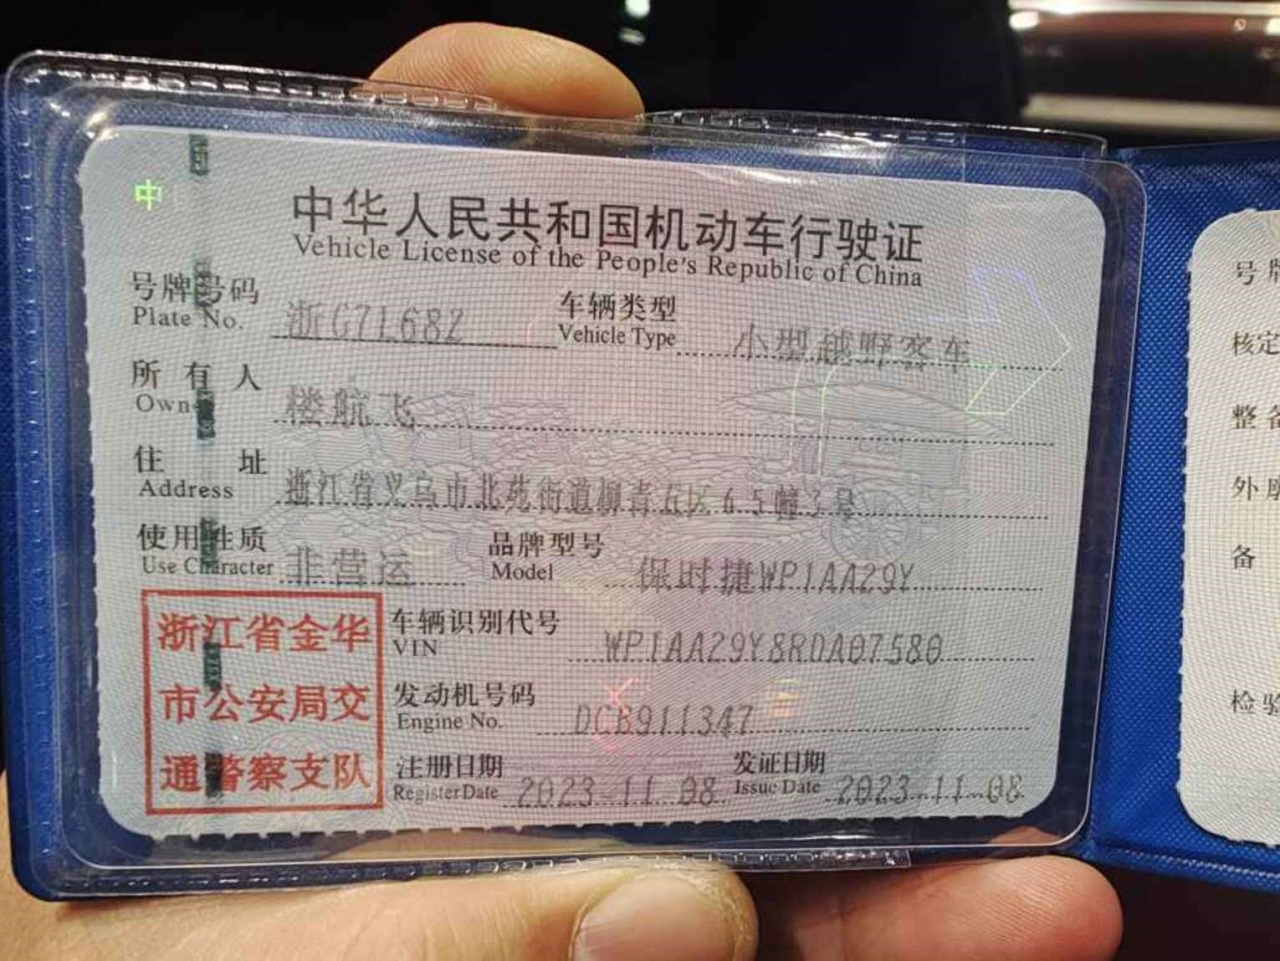 中
中华人民共和国机动车行驶证
Vehicle License of the People's Republic of China
号牌号码 浙G7L68Z 车辆类型 小型越野客车
Plate No. Vehicle Type
所有人 楼航飞
Own
住址 浙江省义乌市北苑街道柳青五区65幢3号
Address
使用性质 非营运 品牌型号 保时捷WP1AA29Y
Use Character Model
浙江省金华
市公安局交
通警察支队
车辆识别代号 WP1AA29Y8RDA07580
VIN
发动机号码 DCB911347
Engine No.
注册日期 2023-11-08 发证日期 2023-11-08
Register Date Issue Date
号牌
核定
整备
外廓
备
检验